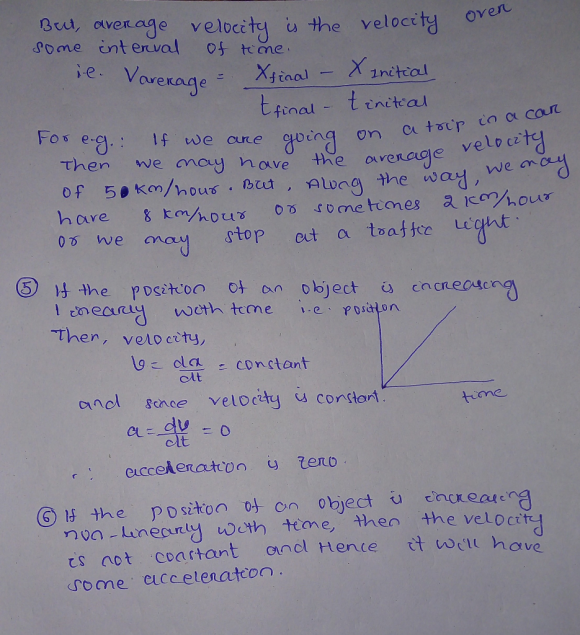 But, average velocity is the velocity over
some interval of time.
i.e. Vaverage = Xfinal - Xinitial
tfinal - tinitial
For e.g. : If we are going on a trip in a car
Then we may have the average velocity
of 5 km/hour. But, Along the way, we may
have 8 km/hour or sometimes 2 km/hour
or we may stop at a traffic light.
⑤ If the position of an object is increasing
linearly with time i.e. position
Then, velocity,
v = dx/dt = constant
and since velocity is constant.
time
a = dv/dt = 0
∴ acceleration is zero.
⑥ If the position of an object is increasing
non-linearly with time, then the velocity
is not constant and Hence it will have
some acceleration.